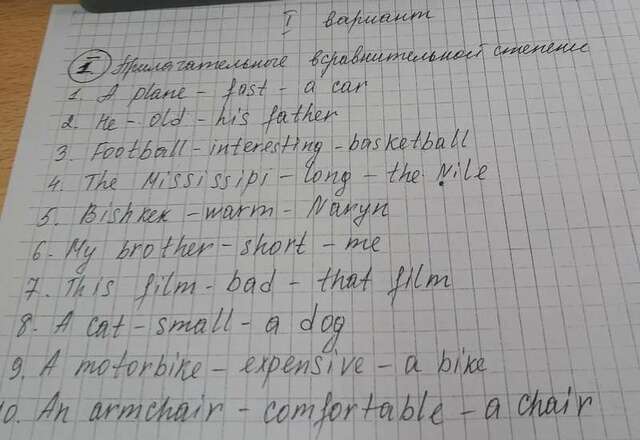 I вариант
I Прилагательные в сравнительной степени
1. A plane - fast - a car
2. He - old - his father
3. Football - interesting - basketball
4. The Mississipi - long - the Nile
5. Bishkek - warm - Naryn
6. My brother - short - me
7. This film - bad - that film
8. A cat - small - a dog
9. A motorbike - expensive - a bike
10. An armchair - comfortable - a chair